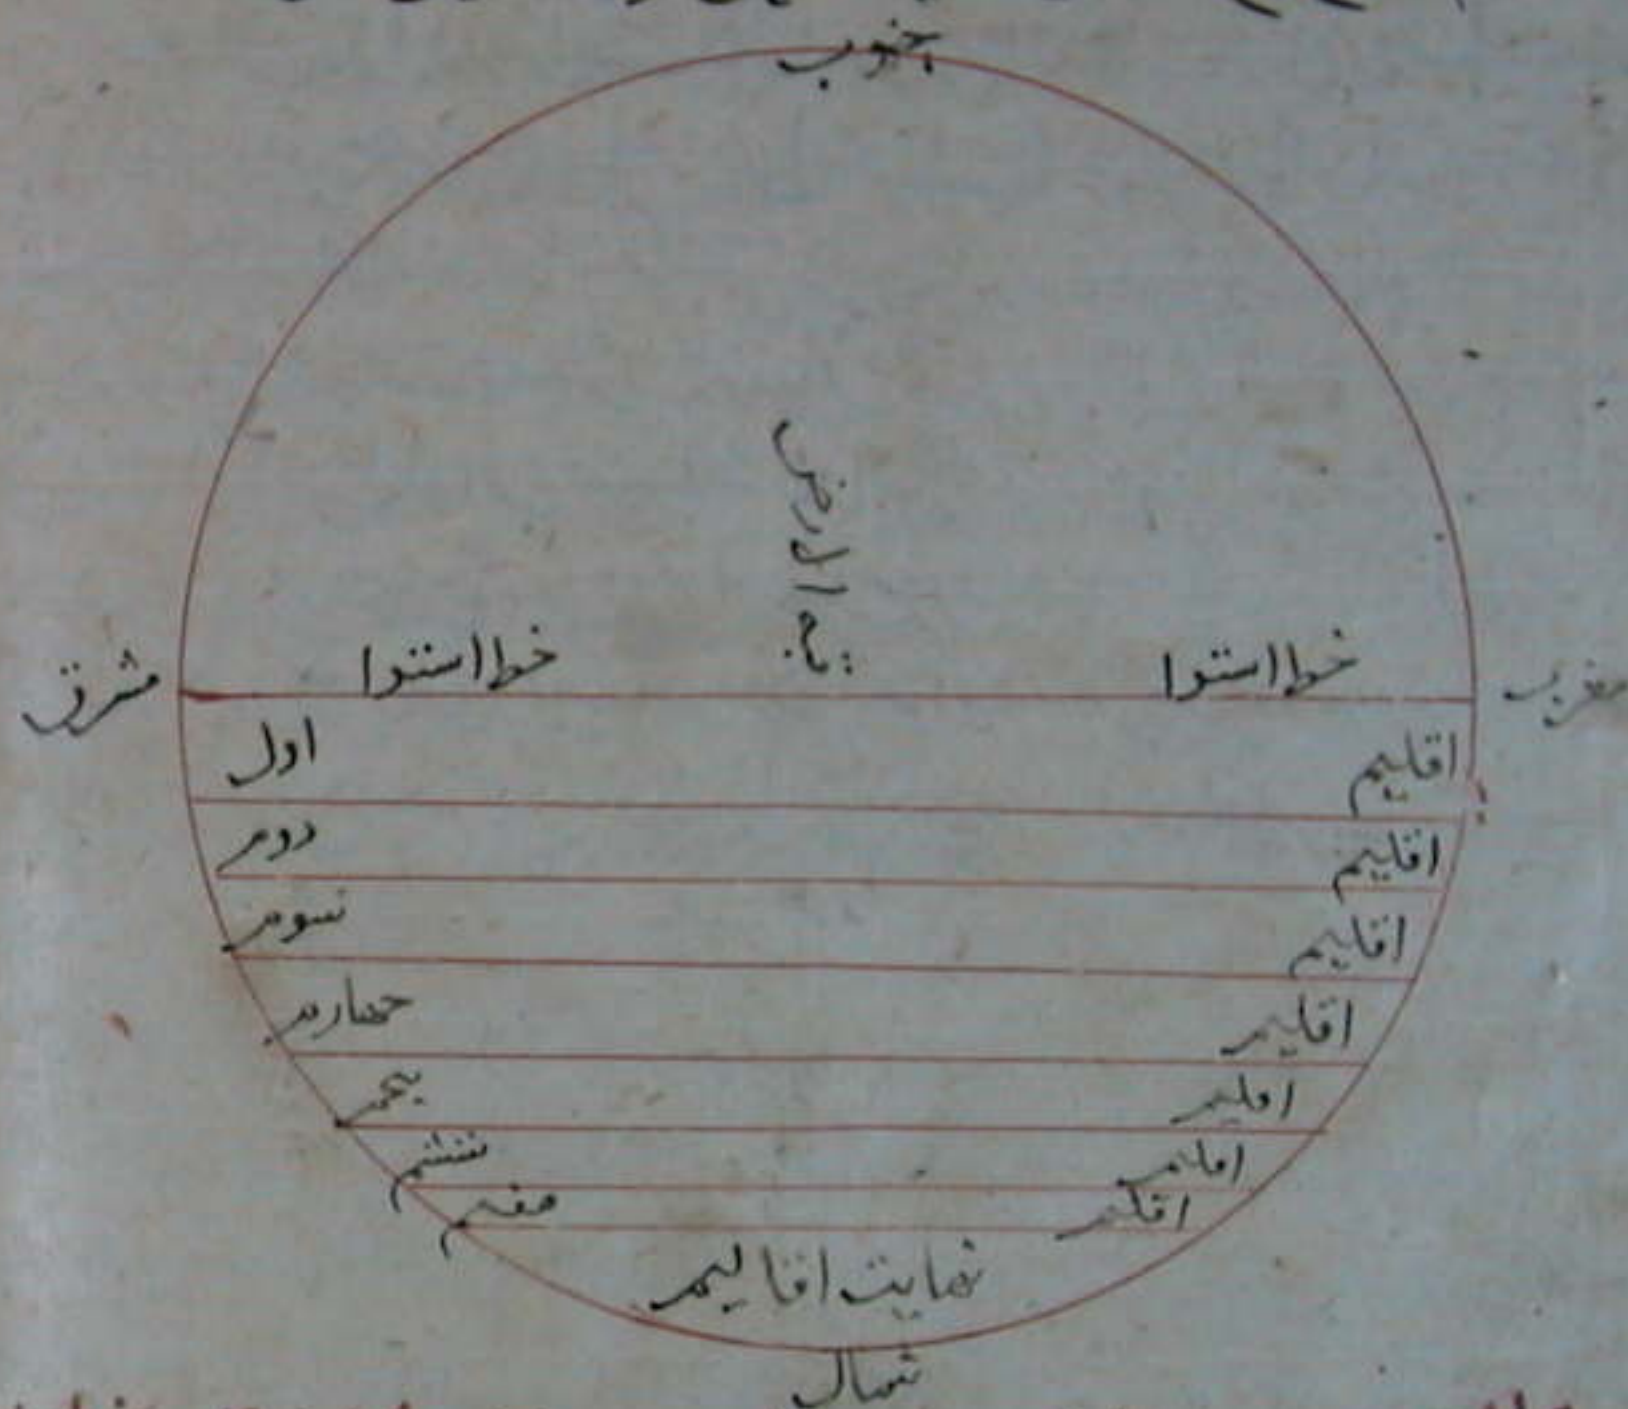 جنوب
الارض
خط استوا خط استوا
مغرب مشرق
اقلیم اول
اقلیم دوم
اقلیم سوم
اقلیم چهارم
اقلیم پنجم
اقلیم ششم
اقلیم هفتم
نهایت اقالیم
شمال